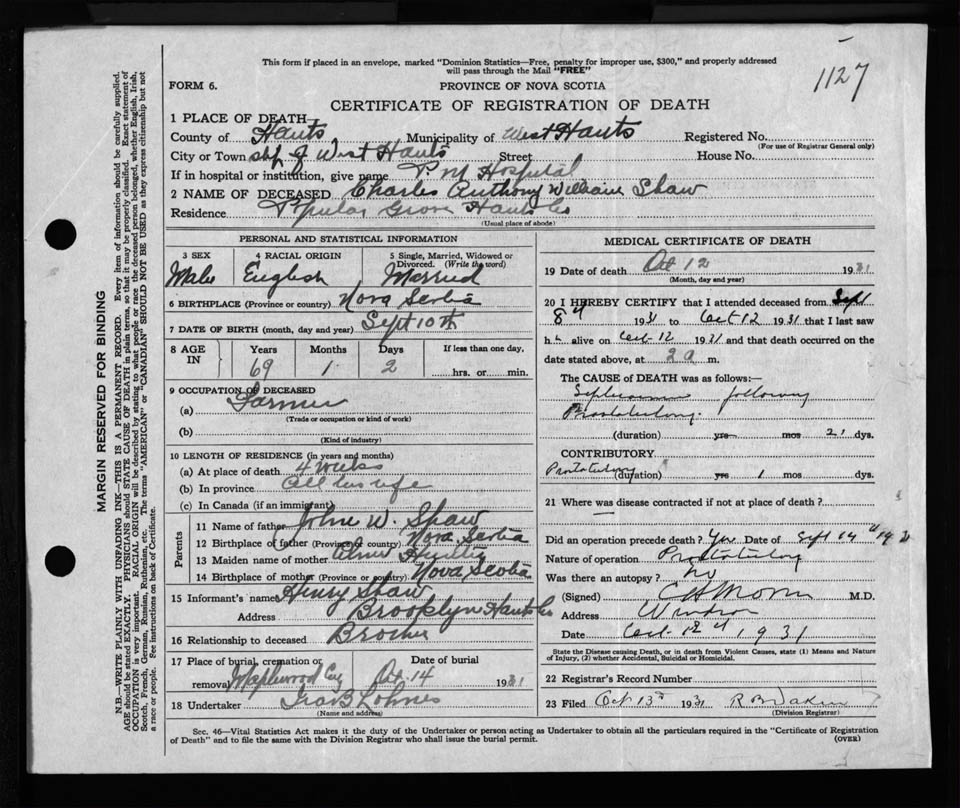 This form if placed in an envelope, marked "Dominion Statistics—Free, penalty for improper use, $300," and properly addressed
will pass through the Mail "FREE"
1127
FORM 6.
PROVINCE OF NOVA SCOTIA
CERTIFICATE OF REGISTRATION OF DEATH
1 PLACE OF DEATH
County of Hants Municipality of West Hants Registered No.
(For use of Registrar General only)
City or Town of West Hants Street House No.
If in hospital or institution, give name P M Hospital
2 NAME OF DECEASED Charles Anthony William Shaw
Residence Popular Grove Hants Co
(Usual place of abode)
PERSONAL AND STATISTICAL INFORMATION
3 SEX 4 RACIAL ORIGIN 5 Single, Married, Widowed or
Divorced. (Write the word)
Male English Married
6 BIRTHPLACE (Province or country) Nova Scotia
7 DATE OF BIRTH (month, day and year) Sept 10th
8 AGE IN Years Months Days If less than one day,
69 1 2 hrs. or min.
9 OCCUPATION OF DECEASED
(a) Farmer
(Trade or occupation or kind of work)
(b)
(Kind of industry)
10 LENGTH OF RESIDENCE (in years and months)
(a) At place of death 4 weeks
(b) In province all his life
(c) In Canada (if an immigrant)
Parents
11 Name of father John W. Shaw
12 Birthplace of father (Province or country) Nova Scotia
13 Maiden name of mother
14 Birthplace of mother (Province or country) Nova Scotia
15 Informant's name Henry Shaw
Address Brooklyn Hants Co
16 Relationship to deceased Brother
17 Place of burial, cremation or Date of burial
removal Maplewood Cey Oct. 14 1931
18 Undertaker Ira B Lohnes
(Name and address)
MEDICAL CERTIFICATE OF DEATH
19 Date of death Oct 12 1931
(Month, day and year)
20 I HEREBY CERTIFY that I attended deceased from Sept
8th 1931 to Oct 12 1931 that I last saw
h alive on Oct. 12 1931 and that death occurred on the
date stated above, at 2 a m.
The CAUSE of DEATH was as follows:—
Septicaemia following
Prostatectomy.
(duration) yrs mos 21 dys.
CONTRIBUTORY
Prostatectomy (duration) yrs 1 mos dys.
21 Where was disease contracted if not at place of death?
Did an operation precede death? Yes Date of Sept 14th
Nature of operation Prostatectomy
Was there an autopsy? no
(Signed) M.D.
Address Windsor
Date Oct. 12th, 1931
State the Disease causing Death, or in death from Violent Causes, state (1) Means and Nature
of Injury, (2) whether Accidental, Suicidal or Homicidal.
22 Registrar's Record Number
23 Filed Oct 13th 1931
(Division Registrar)
Sec. 46—Vital Statistics Act makes it the duty of the Undertaker or person acting as Undertaker to obtain all the particulars required in the "Certificate of Registration
of Death" and to file the same with the Division Registrar who shall issue the burial permit. (OVER)
MARGIN RESERVED FOR BINDING
N.B.—WRITE PLAINLY WITH UNFADING INK—THIS IS A PERMANENT RECORD. Every item of information should be carefully supplied.
AGE should be stated EXACTLY. PHYSICIANS should STATE CAUSE OF DEATH in plain terms, so that it may be properly classified. Exact statement of
OCCUPATION is very important. RACIAL ORIGIN will be described by stating to what people or race the deceased person belonged, whether English, Irish,
Scotch, French, German, Russian, Ruthenian, etc. The terms "AMERICAN" or "CANADIAN" SHOULD NOT BE USED as they express citizenship but not
a race or people. See instructions on back of Certificate.